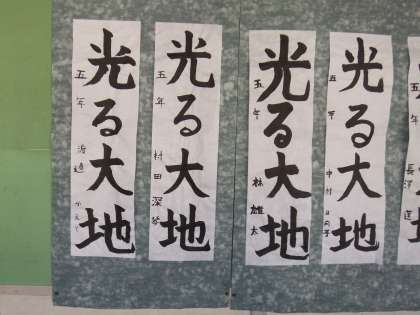 光る大地
五年
光る大地
五年 村田深琴
光る大地
五年 林雄太
光る大地
五年 中村
五年 長澤